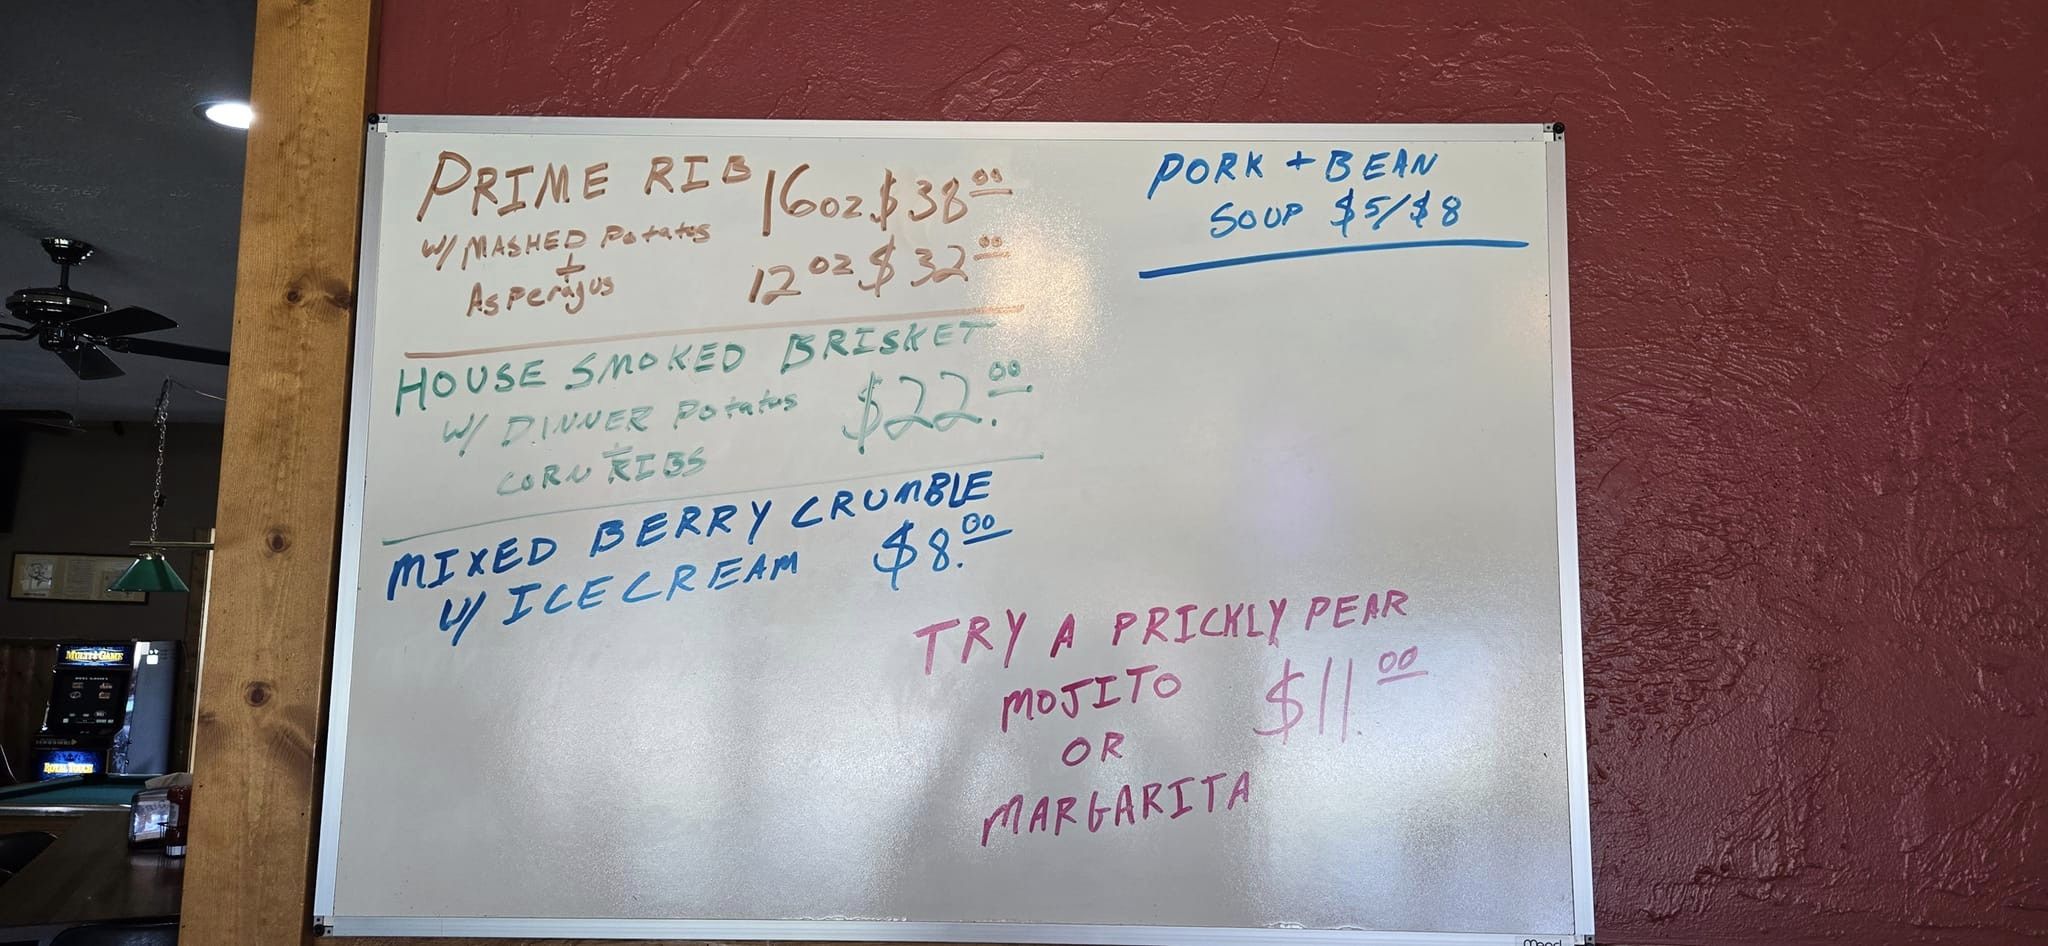 PRIME RIB 16oz $38.00
W/ MASHED Potatos
+
Asperagus 12oz $32.00
HOUSE SMOKED BRISKET
W/ DINNER Potatos $22.00
+
CORN RIBS
MIXED BERRY CRUMBLE
W/ ICE CREAM $8.00
PORK + BEAN
SOUP $5/$8
TRY A PRICKLY PEAR
MOJITO $11.00
OR
MARGARITA
MULTI-GAME
ROYAL TOUCH